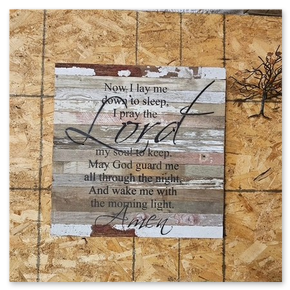 Now I lay me
down to sleep,
I pray the
Lord
my soul to keep.
May God guard me
all through the night,
And wake me with
the morning light.
Amen